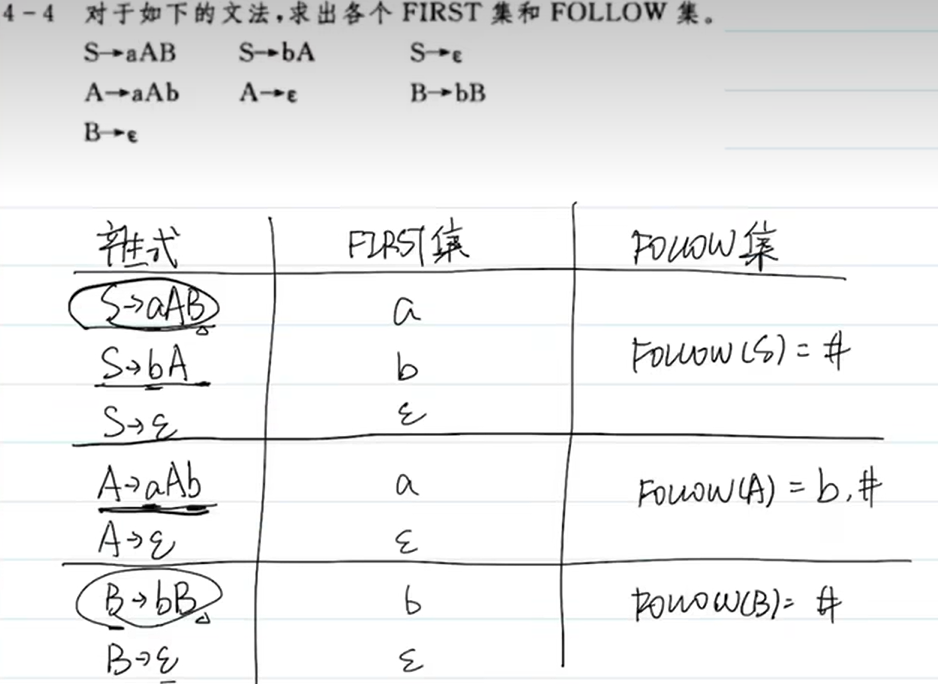 4-4 对于如下的文法,求出各个 FIRST 集和 FOLLOW 集。
S→aAB S→bA S→ε
A→aAb A→ε B→bB
B→ε
产生式 FIRST集 FOLLOW集
S→aAB a
FOLLOW(S)=#
S→bA b
S→ε ε
A→aAb a FOLLOW(A)=b,#
A→ε ε
B→bB b FOLLOW(B)=#
B→ε ε